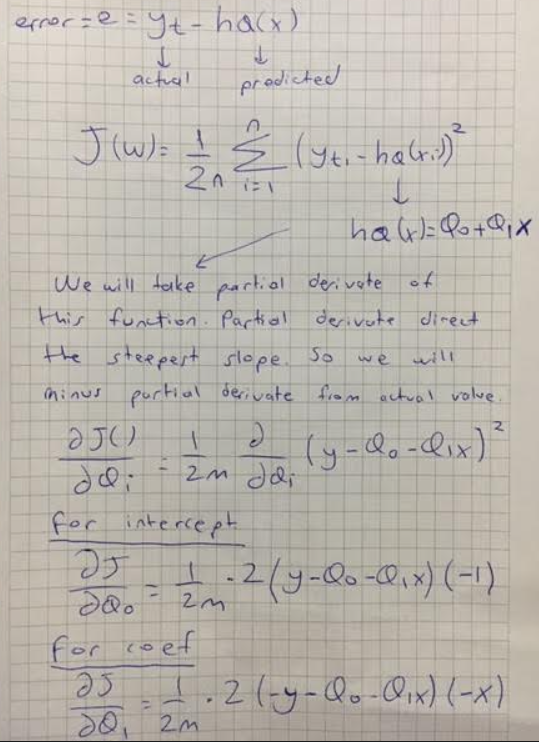 error = e = yt - hQ(x)
↓ ↓
actual predicted
J(w) = 1/2n Σ_{i=1}^{n} (yt_i - hQ(x_i))^2
↓
hQ(x) = Q0 + Q1x
We will take partial derivate of
this function. Partial derivate direct
the steepest slope. So we will
minus partial derivate from actual value.
∂J()/∂Qi = 1/2m ∂/∂Qi (y - Q0 - Q1x)^2
for intercept
∂J/∂Q0 = 1/2m . 2(y - Q0 - Q1x)(-1)
for coef
∂J/∂Q1 = 1/2m . 2(-y - Q0 - Q1x)(-x)